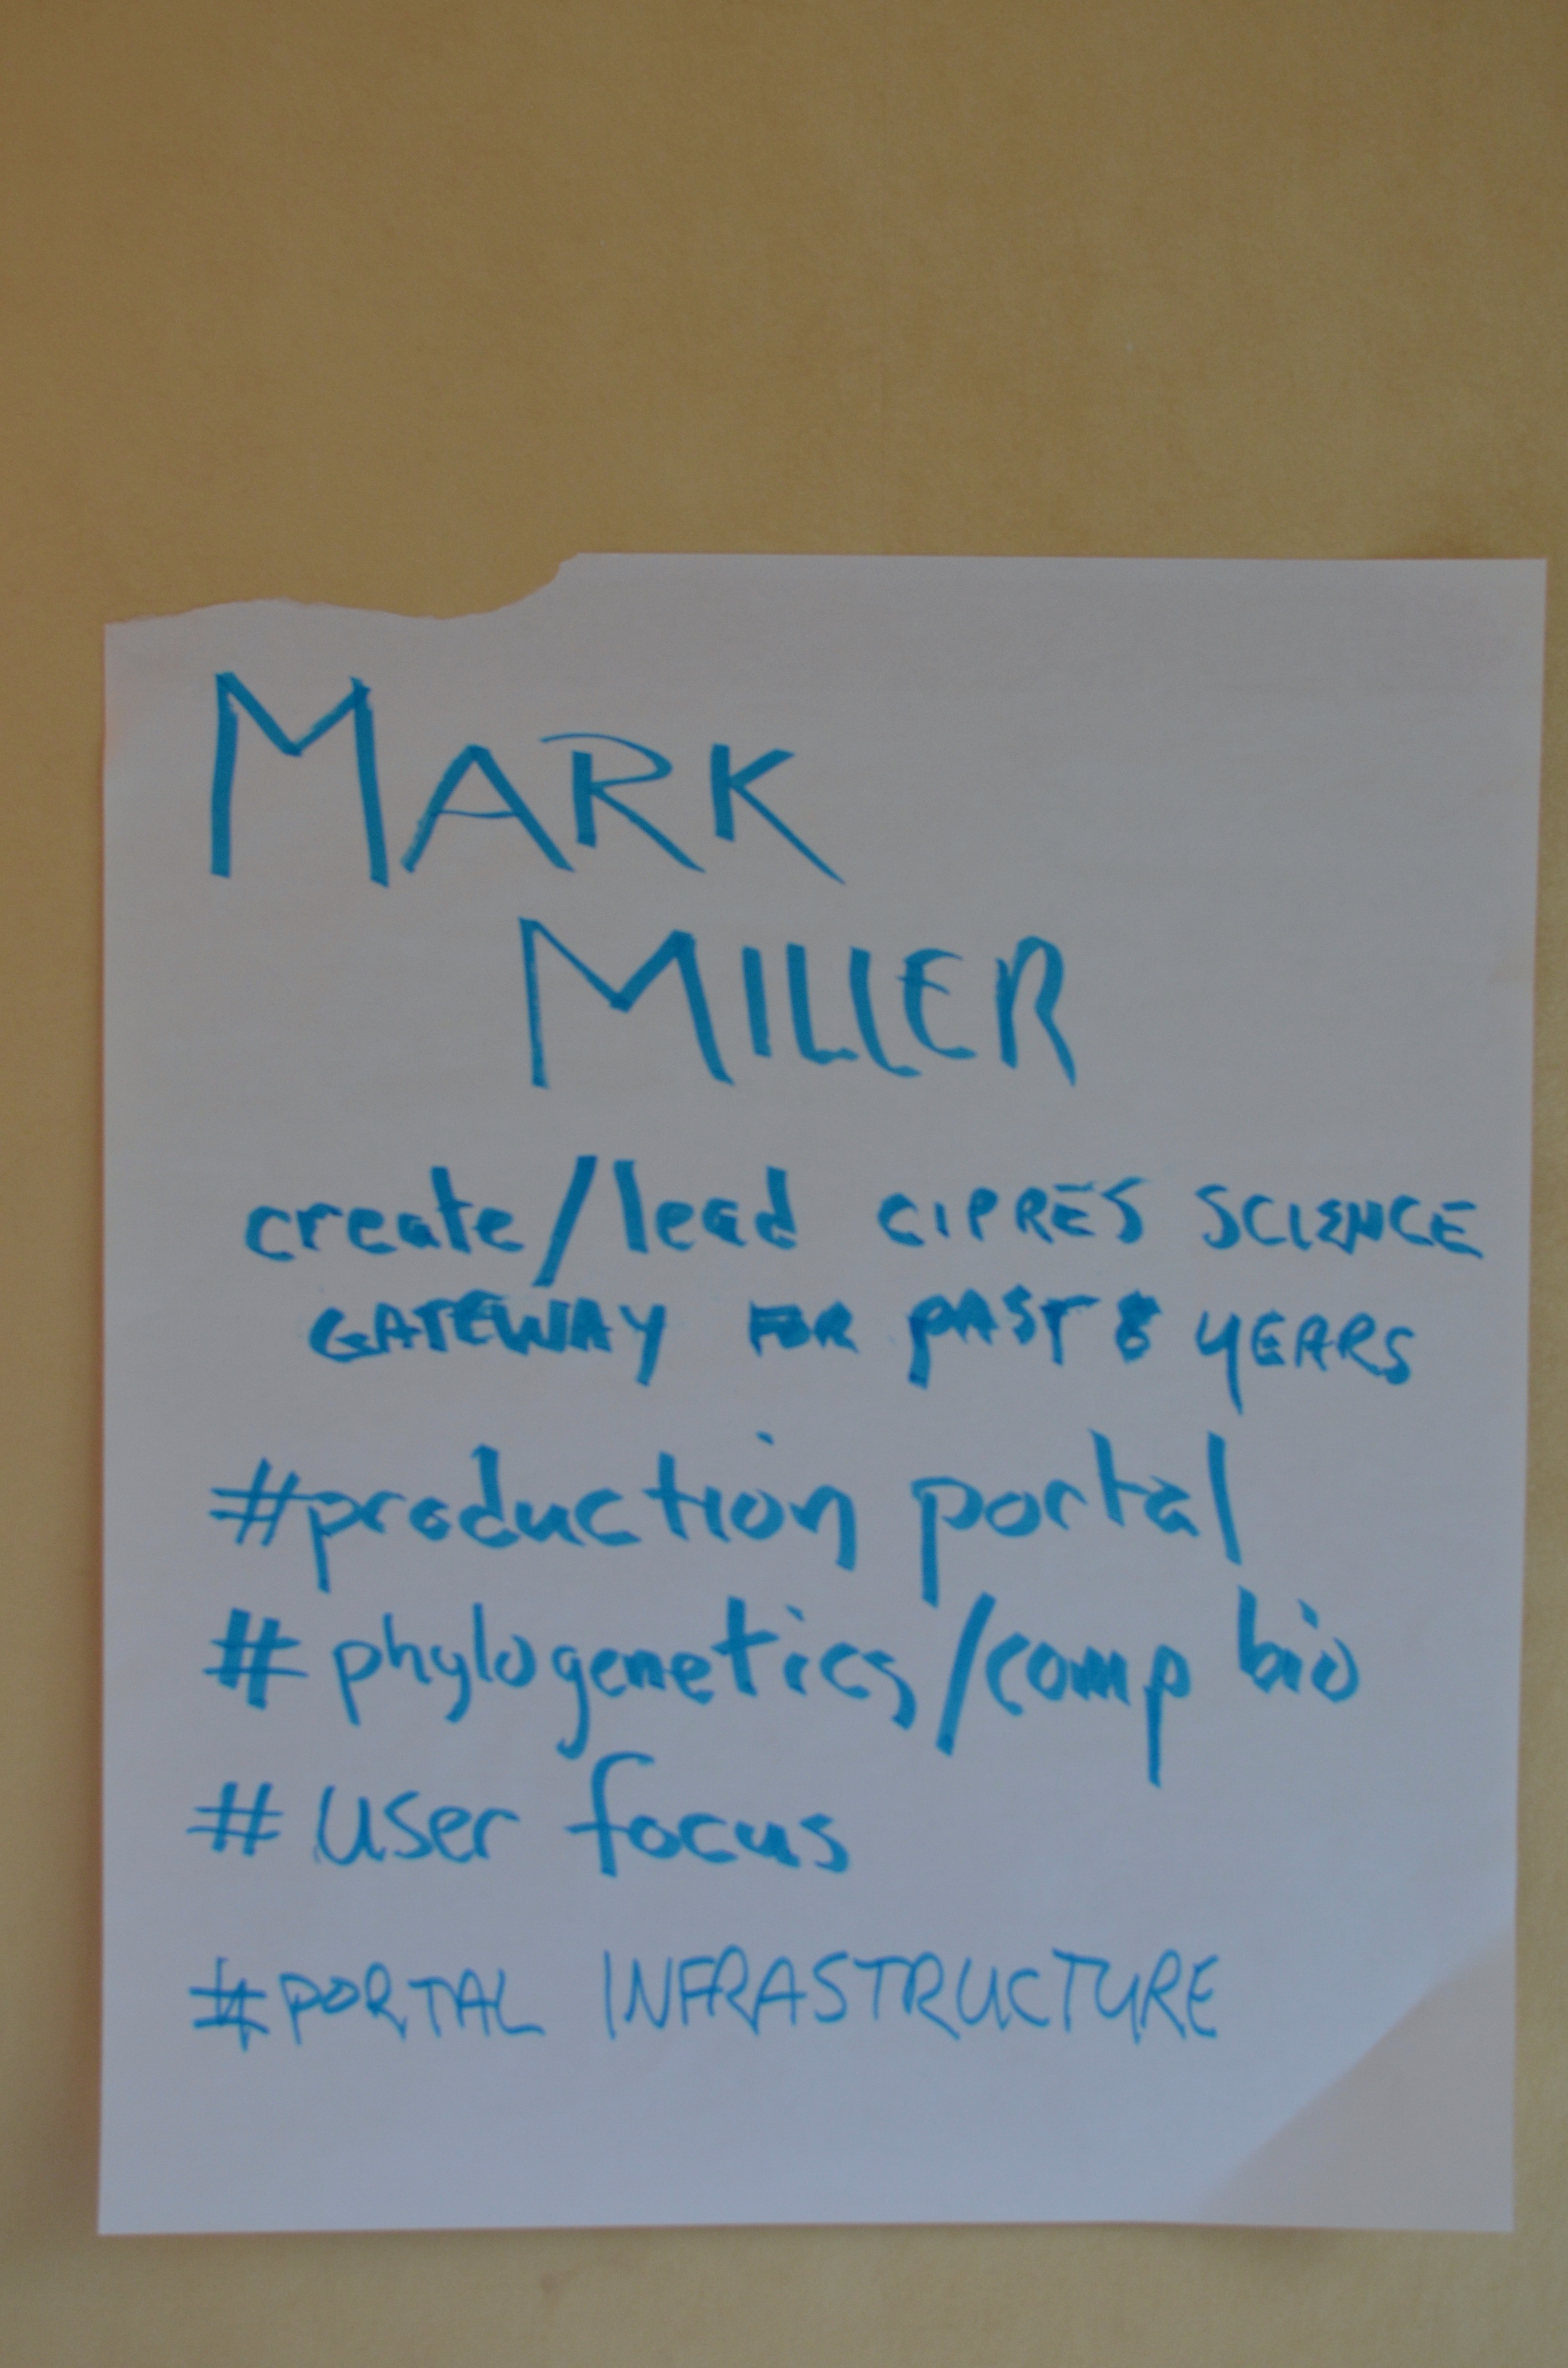 MARK
MILLER
create/lead CIPRES SCIENCE
GATEWAY FOR PAST 8 YEARS
#production portal
# phylogenetics/comp bio
# user focus
#PORTAL INFRASTRUCTURE